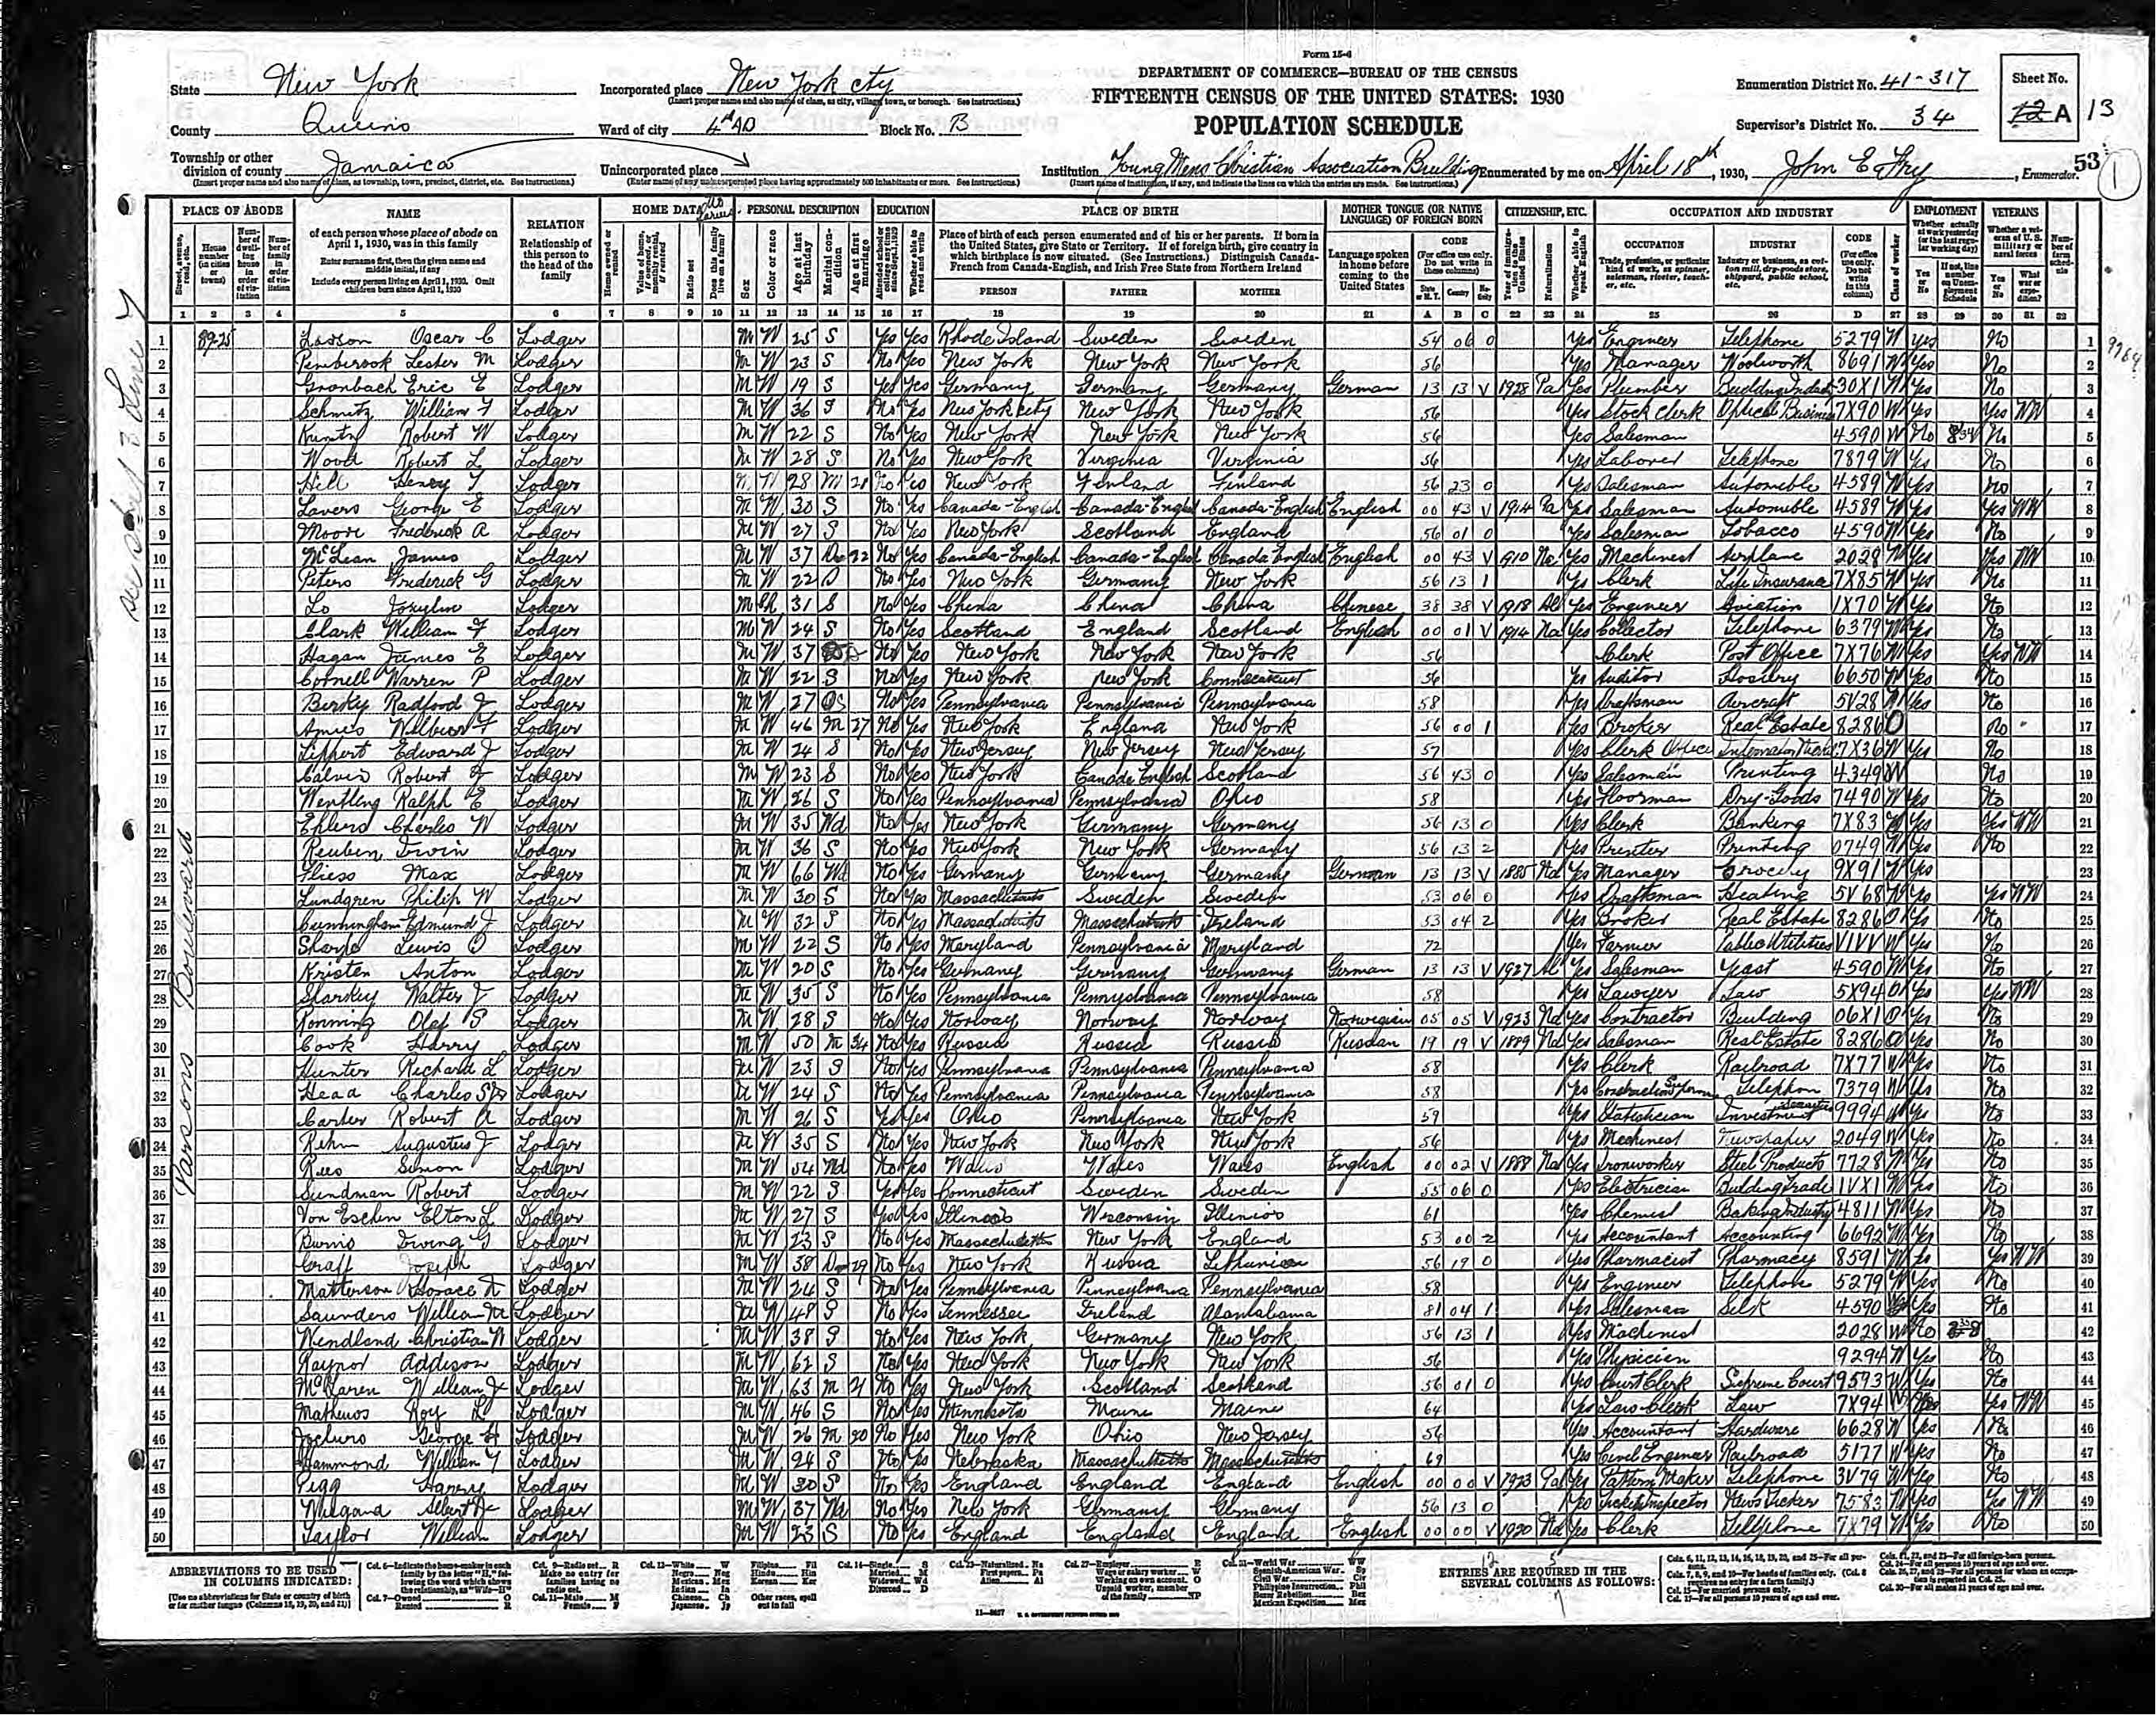 Form 15-6
DEPARTMENT OF COMMERCE—BUREAU OF THE CENSUS
FIFTEENTH CENSUS OF THE UNITED STATES: 1930
POPULATION SCHEDULE
State New York
County Queens
Township or other division of county Jamaica
Incorporated place New York city
Ward of city 4th AD Block No. B
Unincorporated place
Institution Young Mens Christian Association Building
Enumerated by me on April 18th, 1930, John E Fry, Enumerator.
Enumeration District No. 41-317
Supervisor's District No. 34
Sheet No.
12 A 13
53
1
PLACE OF ABODE NAME RELATION HOME DATA PERSONAL DESCRIPTION EDUCATION PLACE OF BIRTH MOTHER TONGUE (OR NATIVE LANGUAGE) OF FOREIGN BORN CITIZENSHIP, ETC. OCCUPATION AND INDUSTRY EMPLOYMENT VETERANS
of each person whose place of abode on April 1, 1930, was in this family
Enter surname first, then the given name and middle initial, if any
Include every person living on April 1, 1930. Omit children born since April 1, 1930
Relationship of this person to the head of the family
Place of birth of each person enumerated and of his or her parents. If born in the United States, give State or Territory. If of foreign birth, give country in which birthplace is now situated. (See Instructions.) Distinguish Canada-French from Canada-English, and Irish Free State from Northern Ireland
PERSON FATHER MOTHER
Language spoken in home before coming to the United States
OCCUPATION INDUSTRY CODE
1 2 3 4 5 6 7 8 9 10 11 12 13 14 15 16 17 18 19 20 21 A B C 22 23 24 25 26 D 27 28 29 30 31 32
Parsons Boulevard
1 89-25 Oscar C Lodger M W 25 S Yes Yes Rhode Island Sweden Sweden 54 06 0 Yes Engineer Telephone 5279 W Yes No
2 Lester M Lodger M W 23 S No Yes New York New York New York 56 Yes Manager Woolworth 8691 W Yes No
3 Gronbach Eric E Lodger M W 19 S Yes Yes Germany Germany Germany German 13 13 V 1928 Pa Yes Plumber 30X1 W Yes No
4 Schmitz William F Lodger M W 36 S No Yes New York city New York New York 56 Yes Stock Clerk Optical Business 7X90 W Yes Yes WW
5 Kuntz Robert W Lodger M W 22 S No Yes New York New York New York 56 Yes Salesman 4590 W No No
6 Wood Robert L Lodger M W 28 S No Yes New York Virginia Virginia 56 Yes Laborer Telephone 7879 W Yes No
7 Hill Henry F Lodger M W 28 M 21 No Yes New York Finland Finland 56 23 0 Yes Salesman Automobile 4589 W Yes No
8 Lavers George E Lodger M W 30 S No Yes Canada-English Canada-English Canada-English English 00 43 V 1914 Pa Yes Salesman Automobile 4589 W Yes Yes WW
9 Moore Frederick A Lodger M W 27 S No Yes New York Scotland England 56 01 0 Yes Salesman Tobacco 4590 W Yes No
10 McLean James Lodger M W 37 22 No Yes Canada-English Canada-English Canada English English 00 43 V 1910 Na Yes Machinest Airplane 2028 W Yes Yes WW
11 Peters Frederick G Lodger M W 22 S No Yes New York Germany New York 56 13 1 Yes Clerk Life Insurance 7X85 W Yes No
12 Lo Lodger M Ch 31 S No Yes China China China Chinese 38 38 V 1918 Al Yes Engineer Aviation 1X70 W Yes No
13 Clark William F Lodger M W 24 S No Yes Scotland England Scotland English 00 01 V 1914 Na Yes Collector Telephone 6379 W Yes No
14 Hagan James E Lodger M W 37 No Yes New York New York New York 56 Clerk Post Office 7X76 W Yes Yes WW
15 Cornell Warren P Lodger M W 22 S No Yes New York New York Connecticut 56 Yes Auditor Hosiery 6650 W Yes No
16 Radford J Lodger M W 27 S No Yes Pennsylvania Pennsylvania Pennsylvania 58 Yes Draftsman Aircraft 5V28 W Yes No
17 Wilbur F Lodger M W 46 M 27 No Yes New York England New York 56 00 1 Yes Broker Real Estate 8286 O No
18 Lippert Edward J Lodger M W 24 S No Yes New Jersey New Jersey New Jersey 57 Yes Clerk Office 7X36 W Yes No
19 Calvin Robert F Lodger M W 23 S No Yes New York Canada English Scotland 56 43 0 Yes Salesman Printing 4349 W No
20 Wentling Ralph E Lodger M W 26 S No Yes Pennsylvania Pennsylvania Ohio 58 Yes Floorman Dry-Goods 7490 W Yes No
21 Ehlers Charles W Lodger M W 35 Wd No Yes New York Germany Germany 56 13 0 Yes Clerk Banking 7X83 W Yes Yes WW
22 Reuben Irwin Lodger M W 36 S No Yes New York New York Germany 56 13 2 Yes Printer Printing 0749 W Yes No
23 Fliess Max Lodger M W 66 Wd No Yes Germany Germany Germany German 13 13 V 1885 Na Yes Manager Grocery 9X91 W Yes
24 Lundgren Philip W Lodger M W 30 S No Yes Massachusetts Sweden Sweden 53 06 0 Yes Draftsman Heating 5V68 W Yes Yes WW
25 Cunningham Edmund J Lodger M W 32 S No Yes Massachusetts Massachusetts Ireland 53 04 2 Yes Broker Real Estate 8286 O Yes No
26 Sharpe Lewis O Lodger M W 22 S No Yes Maryland Pennsylvania Maryland 72 Yes Farmer Public Utilities VIVV W Yes No
27 Kristen Anton Lodger M W 20 S No Yes Germany Germany Germany German 13 13 V 1927 Al Yes Salesman Yeast 4590 W Yes No
28 Sharkey Walter J Lodger M W 35 S No Yes Pennsylvania Pennsylvania Pennsylvania 58 Yes Lawyer Law 5X94 O Yes Yes WW
29 Ronning Olaf S Lodger M W 28 S No Yes Norway Norway Norway Norwegian 05 05 V 1923 Na Yes Contractor Building 06X1 O Yes No
30 Cook Harry Lodger M W 50 M 34 No Yes Russia Russia Russia Russian 19 19 V 1889 Na Yes Salesman Real Estate 8286 O Yes No
31 Hunter Richard L Lodger M W 23 S No Yes Pennsylvania Pennsylvania Pennsylvania 58 Yes Clerk Railroad 7X77 W Yes No
32 Head Charles S Jr Lodger M W 24 S No Yes Pennsylvania Pennsylvania Pennsylvania 58 Yes Construction Telephon 7379 W Yes No
33 Carter Robert A Lodger M W 26 S Yes Yes Ohio Pennsylvania New York 59 Yes Statistician Investment Securities 9994 W Yes No
34 Rehm Augustus J Lodger M W 35 S No Yes New York New York New York 56 Yes Mechinest Newspaper 2049 W Yes No
35 Rees Simon Lodger M W 54 Wd No Yes Wales Wales Wales English 00 02 V 1888 Na Yes Ironworker Steel Products 7728 W Yes No
36 Sundman Robert Lodger M W 22 S Yes Yes Connecticut Sweden Sweden 55 06 0 Yes Electrician Building Trade 1VX1 W Yes No
37 Von Eschen Elton L Lodger M W 27 S Yes Illinois Wisconsin Illinois 61 Yes Chemist Baking Industry 4811 W Yes No
38 Burns Irving G Lodger M W 23 S No Yes Massachusetts New York England 53 00 2 Yes Accountant Accounting 6692 W Yes No
39 Graff Joseph Lodger M W 38 29 No Yes New York Russia Lithuania 56 19 0 Yes Pharmacist Pharmacy 8591 W Yes Yes WW
40 Matterson Horace Lodger M W 24 S No Yes Pennsylvania Pennsylvania Pennsylvania 58 Yes Engineer Telephone 5279 W Yes No
41 Saunders William M Lodger M W 48 S No Yes Tennessee Ireland Alambama 81 04 1 Yes Salesman Silk 4590 W Yes No
42 Wendland Christian W Lodger M W 38 S No Yes New York Germany New York 56 13 1 Yes Machinest 2028 W No
43 Raynor Addison Lodger M W 62 S No Yes New York New York New York 56 Yes Physician 9294 W Yes No
44 McLaren William J Lodger M W 63 M 21 No Yes New York Scotland Scotland 56 01 0 Yes Court Clerk Supreme Court 9593 W Yes No
45 Mathews Roy L Lodger M W 46 S No Yes Minnesota Maine Maine 64 Yes Law Clerk Law 7X94 W Yes WW
46 George H Lodger M W 26 M 20 No Yes New York Ohio New Jersey 56 Yes Accountant Hardware 6628 W Yes No
47 Hammond William F Lodger M W 24 S No Yes Nebraska Massachusetts Massachusetts 69 Yes Civil Engineer Railroad 5177 W Yes No
48 Pigg Harvey Lodger M W 30 S No Yes England England England English 00 00 V 1923 Pa Yes Pattern Maker Telephone 3V79 W Yes No
49 Albert Lodger M W 37 No Yes New York Germany Germany 56 13 0 Yes Ticker Inspector News Ticker 7583 W Yes Yes WW
50 Taylor William Lodger M W 23 S No Yes England England England English 00 00 V 1920 Na Yes Clerk Tellephone 7X79 W Yes No
ABBREVIATIONS TO BE USED IN COLUMNS INDICATED:
ENTRIES ARE REQUIRED IN THE SEVERAL COLUMNS AS FOLLOWS: